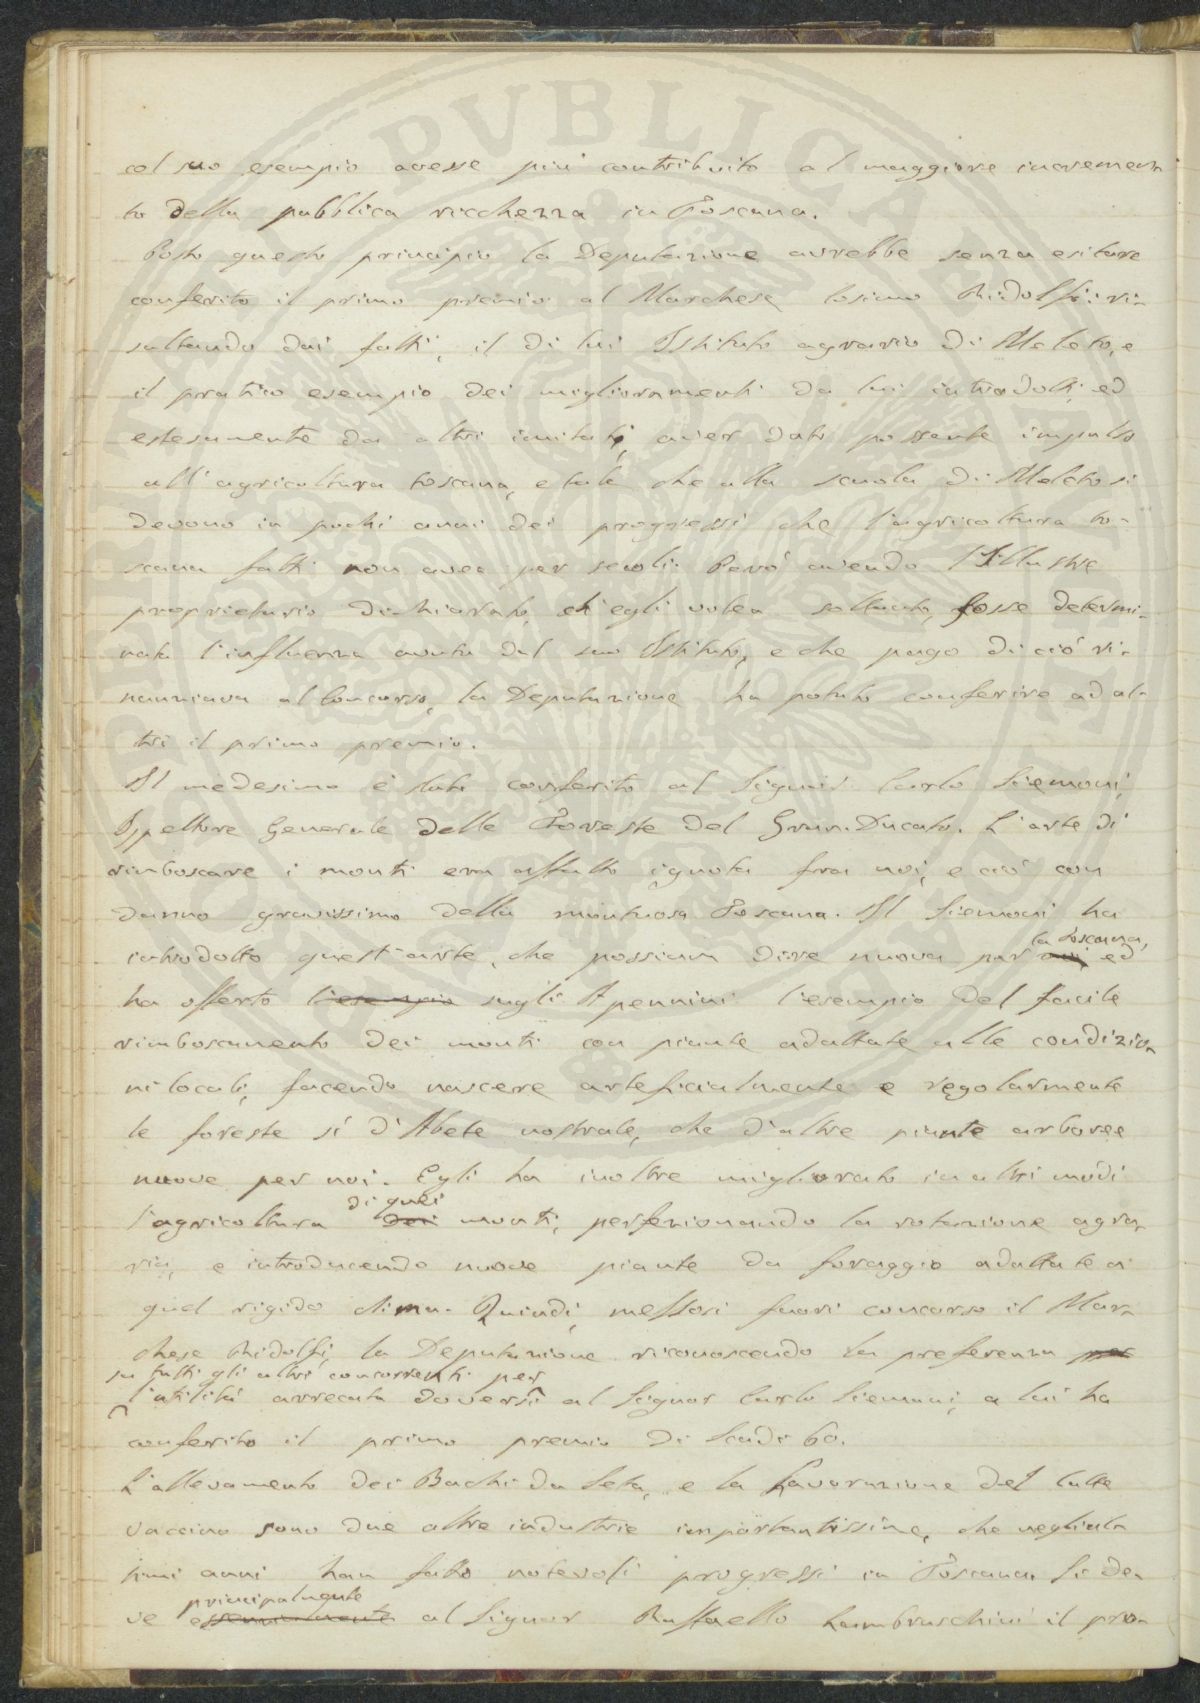 col suo esempio avesse piú contribuito al maggiore incremen
to della pubblica ricchezza in Toscana.
Posto questo principio la Deputazione avrebbe senza esitare
conferito il primo premio al Marchese Cosimo Ridolfi: ri-
sultando dai fatti, il di lui Istituto agrario di Meleto, e
il pratico esempio dei miglioramenti da lui introdotti, ed
estesamente da altri imitati, aver dato possente impulso
all'agricoltura toscana, e tale che alla scuola di Meleto si
devono in pochi anni dei progressi che l'agricoltura to-
scana fatti non avea per secoli. Peró avendo l'Illustre
proprietario dichiarato, ch'egli volea soltanto, fosse determi-
nata l'influenza avuta dal suo Istituto, e che pago di ció ri-
nunziava al Concorso, la Deputazione ha potuto conferire ad al-
tri il primo premio.
Il medesimo é stato conferito al Signor Carlo Siemoni,
Ispettore Generale delle Foreste del Gran-Ducato. L'arte di
rimboscare i monti era affatto ignota fra noi, e ció con
danno gravissimo della montuosa Toscana. Il Siemoni ha
la Toscana,
introdotto quest'arte, che possiam dire nuova per noi ed
ha offerto l'esempio sugli Apennini l'esempio del facile
rimboscamento dei monti con piante adattate alle condizio-
ni locali, facendo nascere arteficialmente e regolarmente
le foreste sí d'Abete nostrale, che d'altre piante arboree
nuove per noi. Egli ha inoltre migliorato in altri modi
di quei
l'agricoltura dei monti, perfezionando la rotazione agra-
ria, e introducendo nuove piante da foraggio adattate a
quel rigido clima. Quindi, messosi fuori concorso il Mar-
chese Ridolfi, la Deputazione riconoscendo la preferenza per
su tutti gli altri concorrenti per
l'utilitá arrecata doversi al Signor Carlo Siemoni, a lui ha
conferito il primo premio di Scudi 60.
L'allevamento dei Bachi da Seta, e la Lavorazione del latte
vaccino sono due altre industrie importantissime, che negli ul-
timi anni han fatto notevoli progressi in Toscana. Si de-
principalmente
ve essenzialmente al Signor Raffaello Lambruschini il pro-
PVBLICA